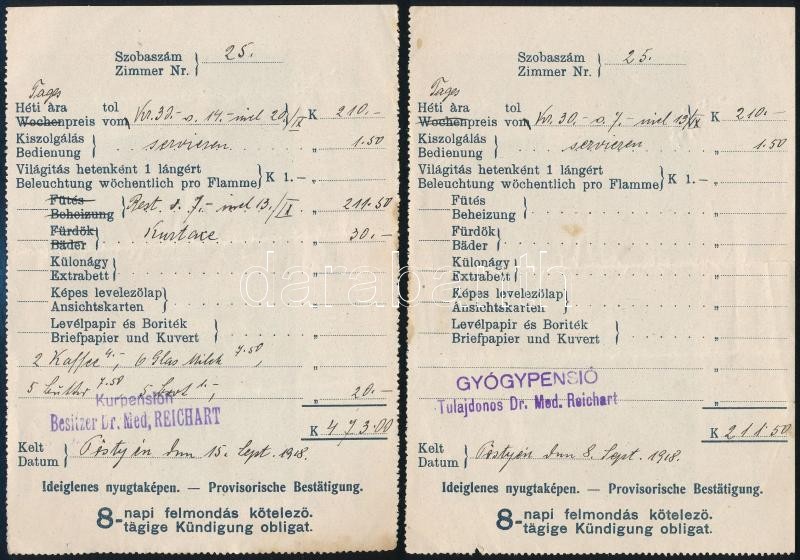 Szobaszám
Zimmer Nr. } 25.
Tages
Héti ára tol
Wochenpreis vom Kr. 30.- v. 14.- incl 20/IX K 210.-
Kiszolgálás
Bedienung } servieren " 1.50
Világitás hetenként 1 lángért
Beleuchtung wöchentlich pro Flamme } K 1.— "
Fütés
Beheizung Rest. v. 7.- incl 13./IX " 211.50
Fürdők
Bäder Kurtaxe " 30.-
Különágy
Extrabett } "
Képes levelezőlap
Ansichtskarten } "
Levélpapir és Boriték
Briefpapier und Kuvert } "
2 Kaffee 4.-, 6 Glas Milch 7.50,
5 Butter 7.50 5 Brot 1.- " 20.-
Kurpension
Besitzer Dr. Med, REICHART
K 473.00
Kelt
Datum } Pöstyén den 15. Sept. 1918.
Ideiglenes nyugtaképen. — Provisorische Bestätigung.
8- napi felmondás kötelező.
tägige Kündigung obligat.
Szobaszám
Zimmer Nr. } 25.
Tages
Héti ára tol
Wochenpreis vom Kr. 30.- v. 7.- incl 13/IX K 210.-
Kiszolgálás
Bedienung } servieren " 1.50
Világitás hetenként 1 lángért
Beleuchtung wöchentlich pro Flamme } K 1.— "
Fütés
Beheizung } "
Fürdők
Bäder } "
Különágy
Extrabett } "
Képes levelezőlap
Ansichtskarten } "
Levélpapir és Boriték
Briefpapier und Kuvert } "
GYÓGYPENSIÓ
Tulajdonos Dr. Med. Reichart
K 211.50
Kelt
Datum } Pöstyén den 8. Sept. 1918.
Ideiglenes nyugtaképen. — Provisorische Bestätigung.
8- napi felmondás kötelező.
tägige Kündigung obligat.
darabanth